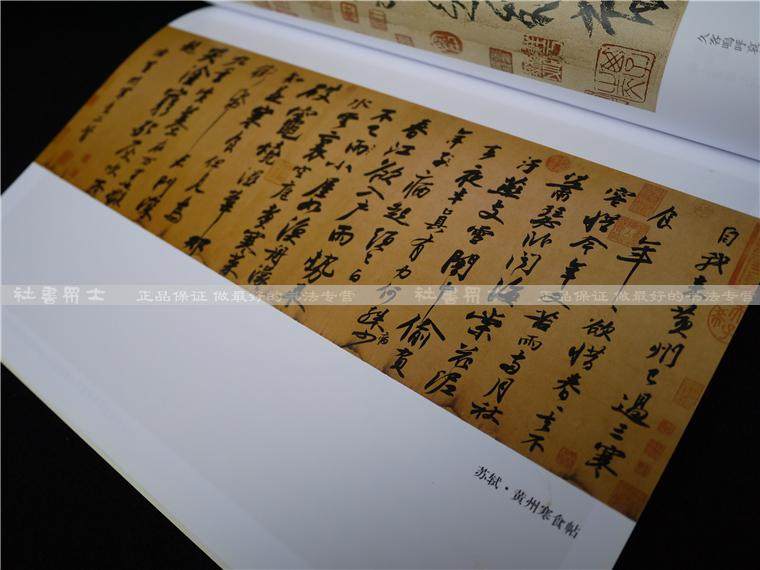 自我来黄州已過三寒
食年〻欲惜春〻去不
容惜今年又苦雨兩月秋
蕭瑟卧聞海棠花泥
汙燕支雪闇中偷負
去夜半真有力何殊病少
年子病起頭已白
春江欲入戶雨勢来
不已雨小屋如漁舟濛〻
水雲裏空庖煮寒菜
破竈燒濕葦那
知是寒食但見烏
銜帋君門深
九重墳墓在万里也擬
哭塗窮死灰吹不
起
右黄州寒食二首
苏轼·黄州寒食帖
久客嗚呼哀
正品保证 做最好的书法专营